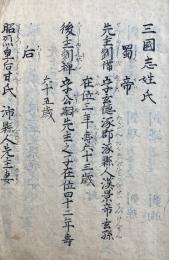 三國志姓氏
蜀帝
先主劉備 字玄德涿郡涿縣人漢景帝玄孫
在位三年壽六十三歲
後主劉禪 字公嗣先主之子在位四十二年壽
六十五歲
后
昭烈皇后甘氏 沛縣人先主妻